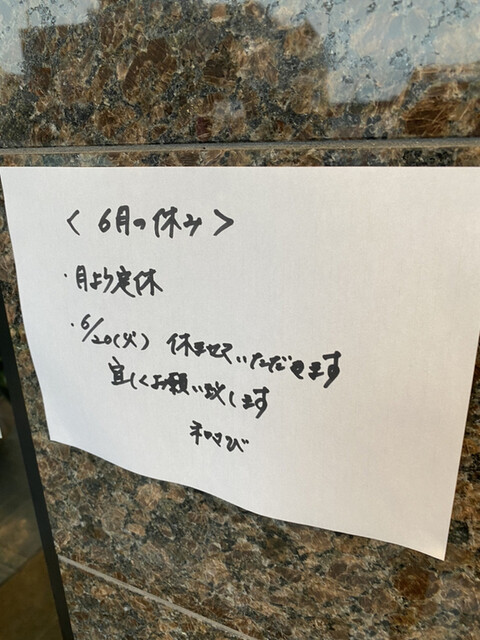 〈 6月の休み 〉
・月よう定休
・6/20(火) 休ませていただきます
宜しくお願い致します
和さび